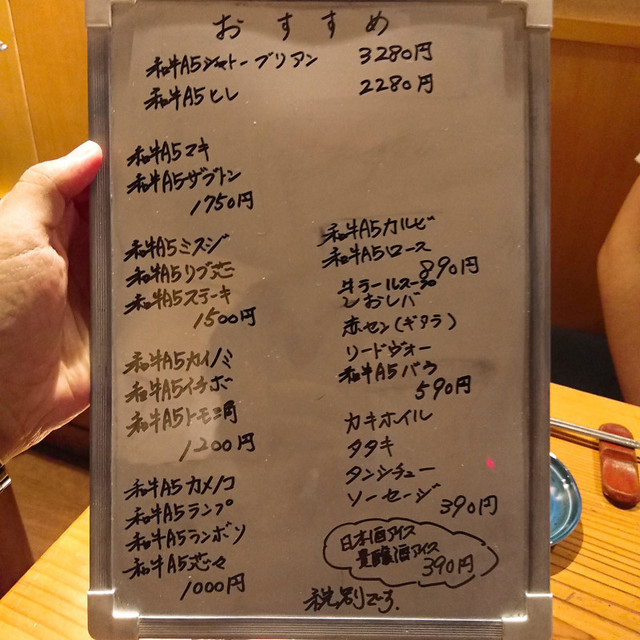 おすすめ
和牛A5シャトーブリアン 3280円
和牛A5ヒレ 2280円
和牛A5マキ
和牛A5ザブトン
1750円
和牛A5ミスジ
和牛A5リブ芯
和牛A5ステーキ
1500円
和牛A5カイノミ
和牛A5イチボ
和牛A5トモ三角
1200円
和牛A5カメノコ
和牛A5ランプ
和牛A5ランボソ
和牛A5芯々
1000円
和牛A5カルビ
和牛A5ロース
890円
牛テールスープ
しおレバ
赤セン(ギアラ)
リードヴォー
和牛A5バラ
590円
カキホイル
タタキ
タンシチュー
ソーセージ
390円
日本酒アイス
貴醸酒アイス
390円
税別です.